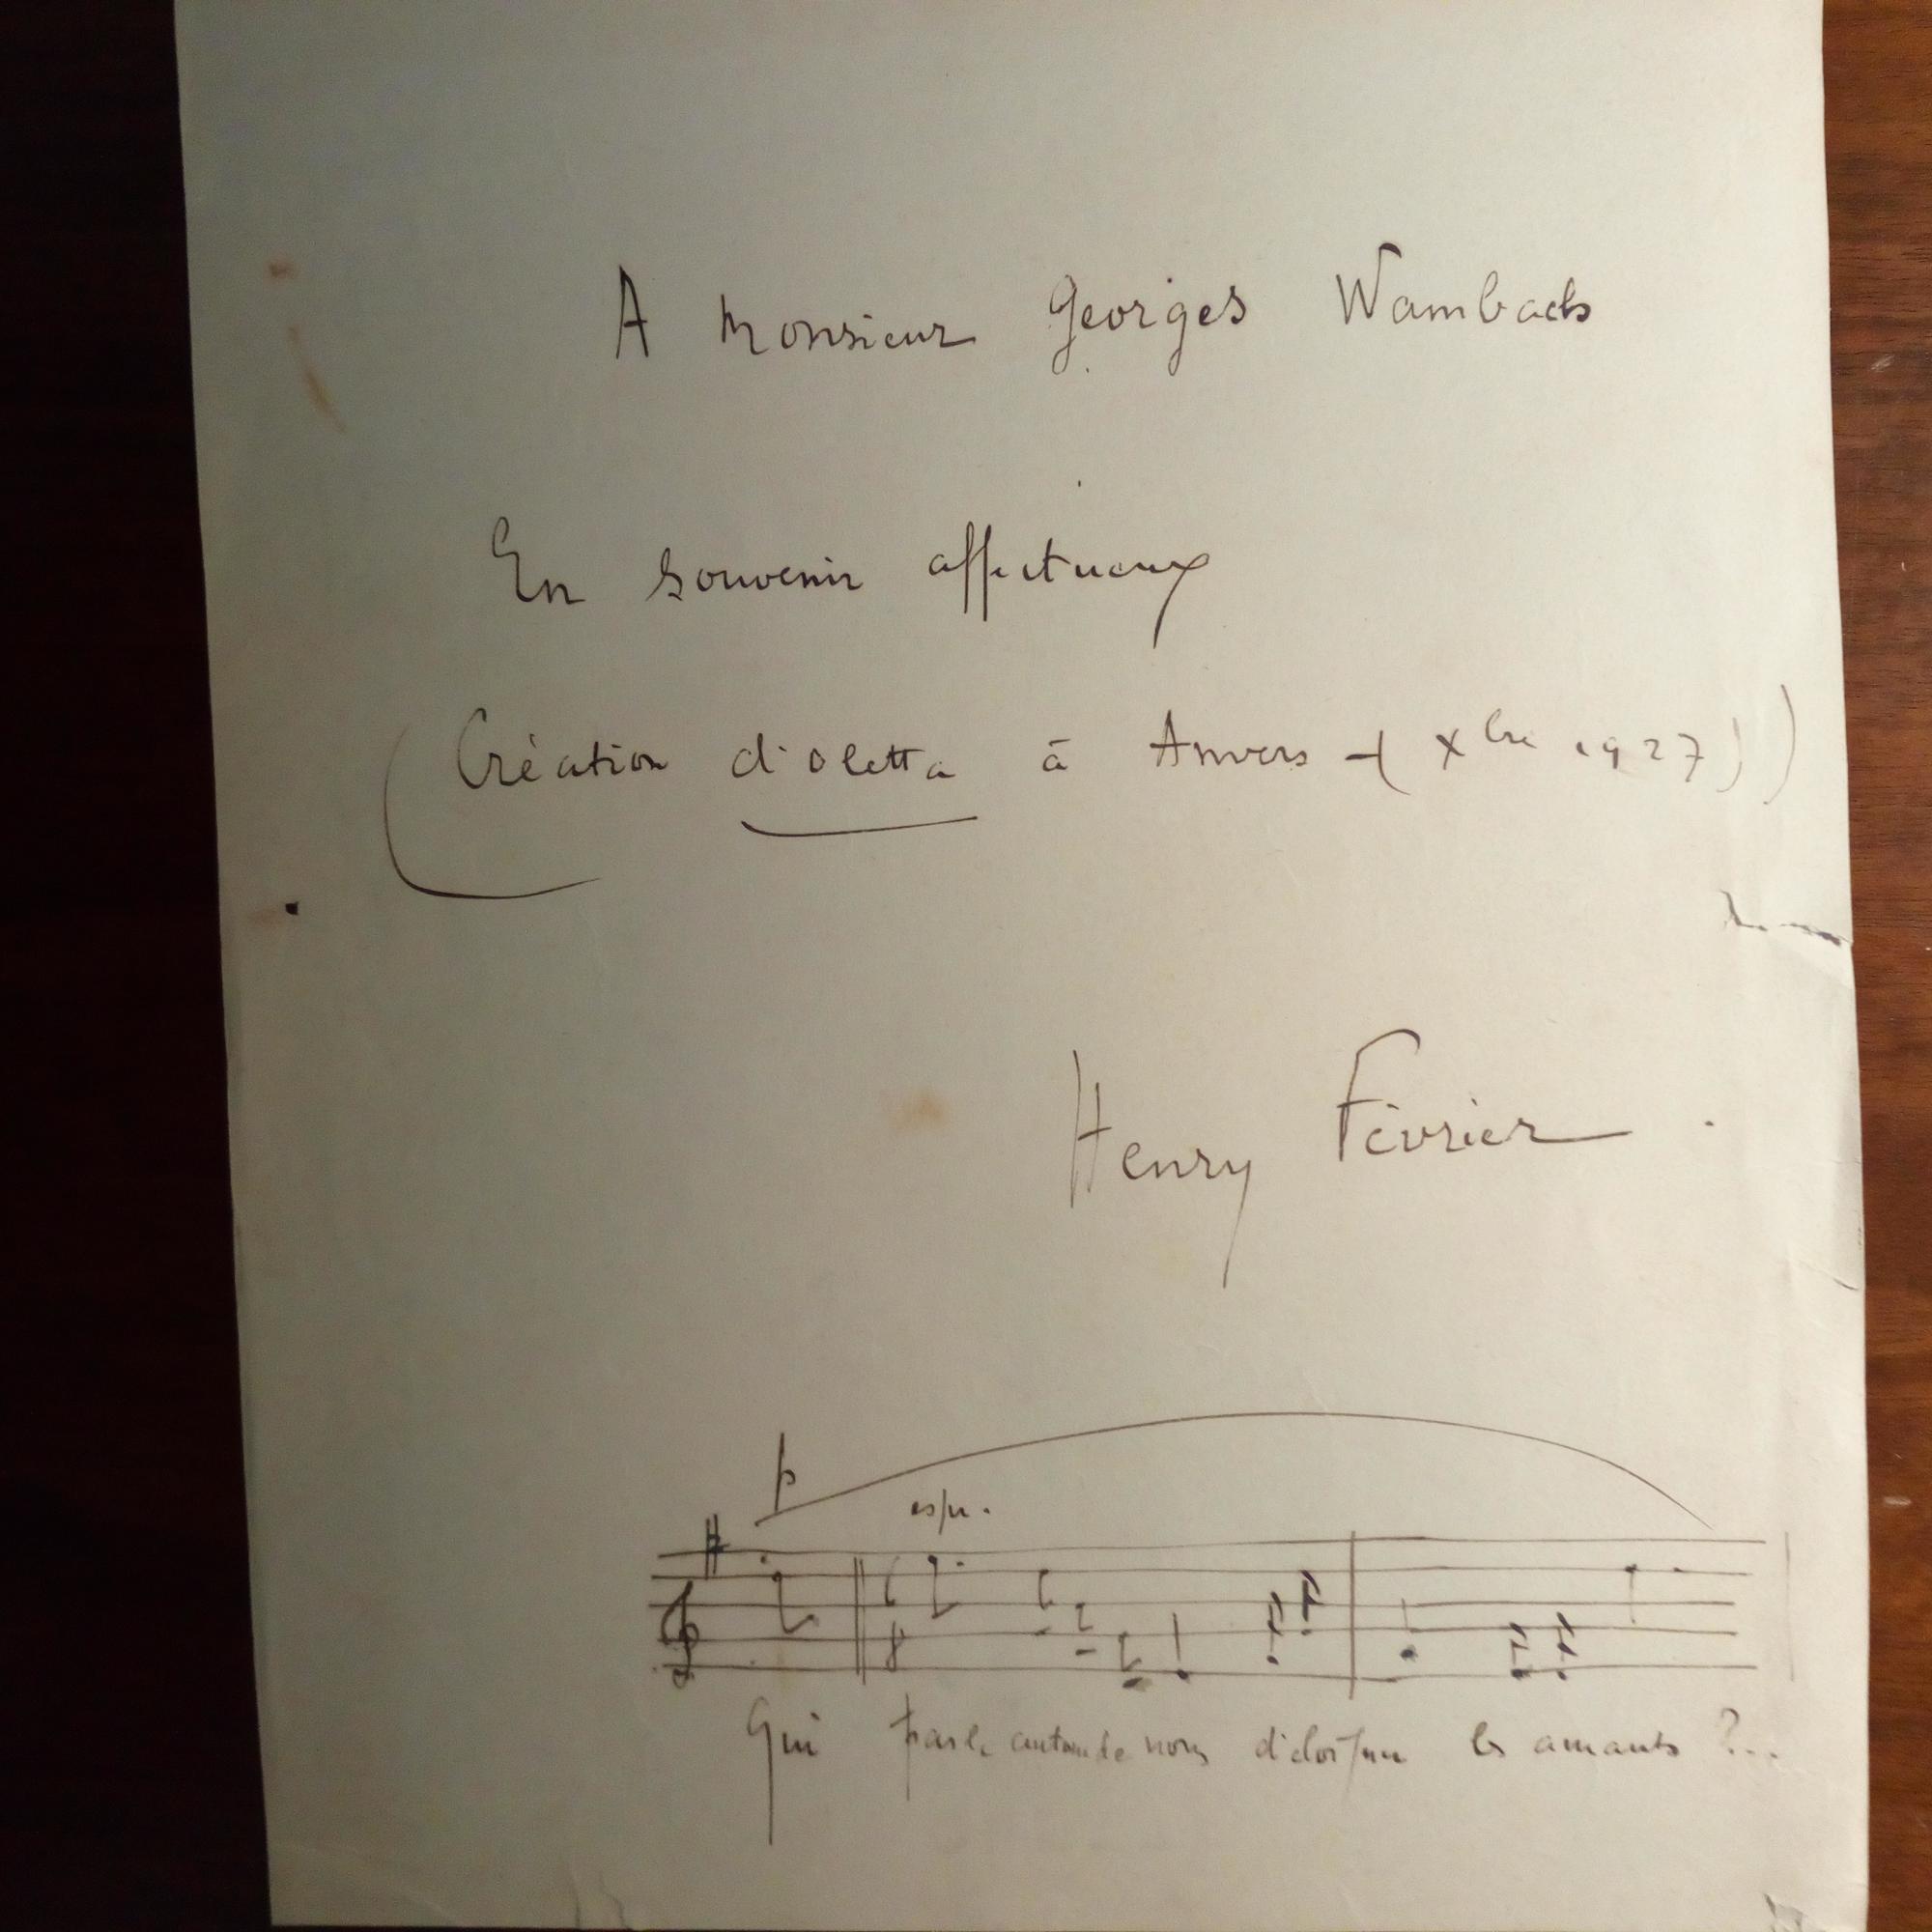 A Monsieur Georges Wambach
En souvenir affectueux
(Création d'Oletta à Anvers - (Xbre 1927))
Henry Février.
p
espr.
Qui parle autour de nous d'éloigner les amants ?...